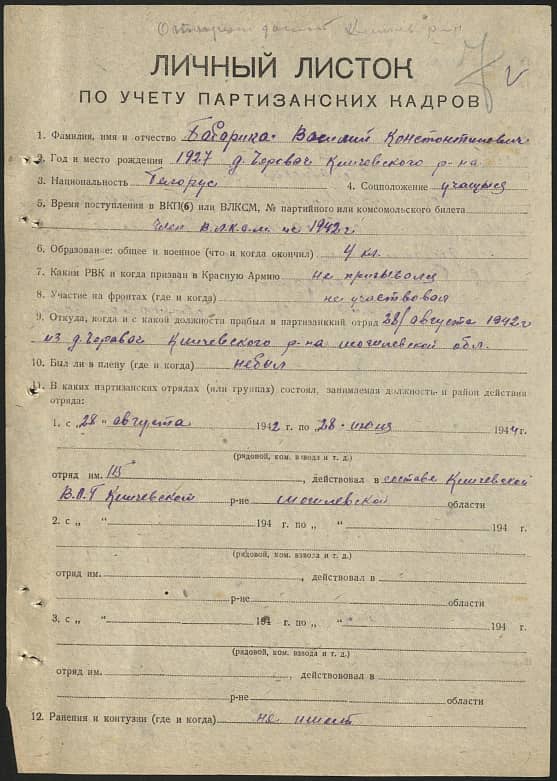 ЛИЧНЫЙ ЛИСТОК
ПО УЧЕТУ ПАРТИЗАНСКИХ КАДРОВ
1. Фамилия, имя и отчество Бабарика Василий Константинович
2. Год и место рождения 1927 д. Черовач Кличевского р-на
3. Национальность Белорус 4. Соцположение учащыся
5. Время поступления в ВКП(б) или ВЛКСМ, № партийного или комсомольского билета
член ВЛКСМ 1942 г
6. Образование: общее и военное (что и когда окончил) 4 кл.
7. Каким РВК и когда призван в Красную Армию не призывался
8. Участие на фронтах (где и когда) не участвовал
9. Откуда, когда и с какой должности прибыл в партизанский отряд 28/августа 1942 г
из д. Черовач Кличевского р-на могилевской обл.
10. Был ли в плену (где и когда) небыл
11. В каких партизанских отрядах (или группах) состоял, занимаемая должность и район действия
отряда:
1. с „28 " августа 1942 г. по „28 - июня 1944 г.
(рядовой, ком. взвода и т. д.)
отряд им. 115 , действовал в составе Кличевской
В.О.Г Кличевской р-не могилевской области
2. с „ " 194 г. по „ " 194 г.
(рядовой, ком. взвода и т. д.)
отряд им. , действовал в
р-не области
3. с „ " 194 г. по „ " 194 г.
(рядовой, ком. взвода и т. д.)
отряд им. , действовал в
р-не области
12. Ранения и контузии (где и когда) не имеет